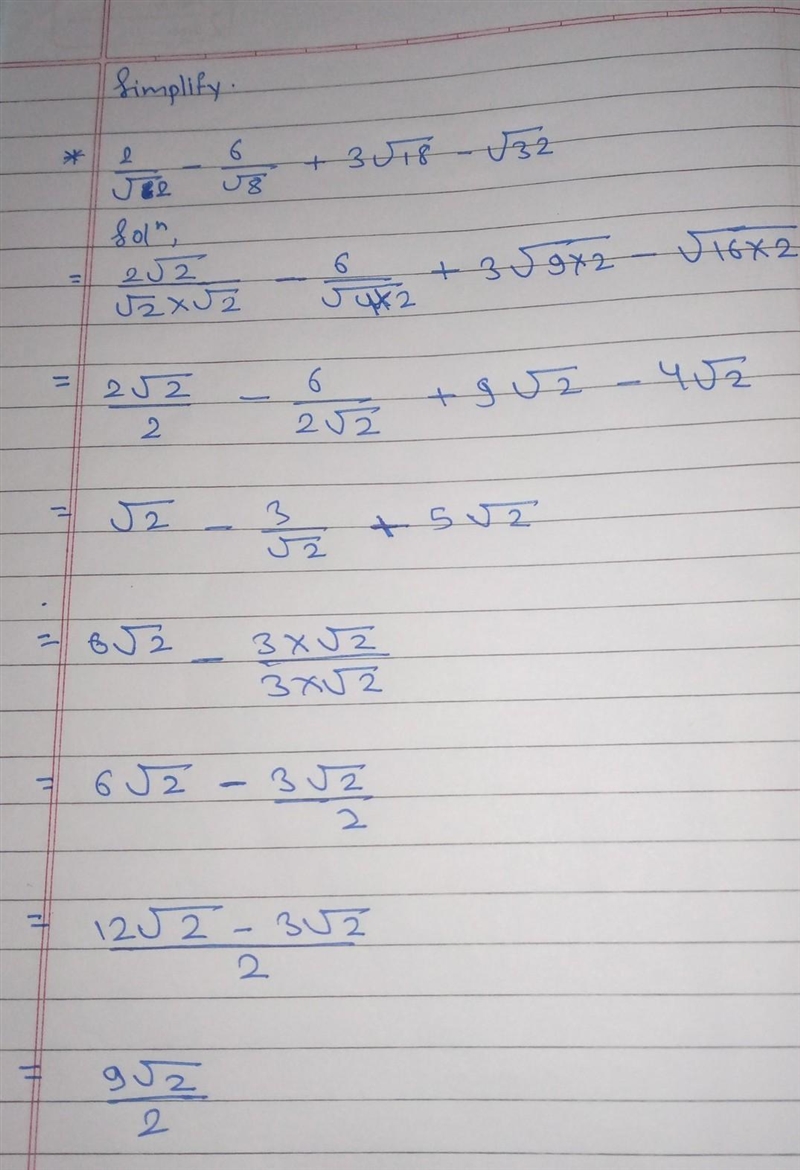 Simplify.
* 2/√2 - 6/√8 + 3√18 - √32
Solⁿ,
= 2√2/√2×√2 - 6/√4×2 + 3√9×2 - √16×2
= 2√2/2 - 6/2√2 + 9√2 - 4√2
= √2 - 3/√2 + 5√2
= 6√2 - 3×√2/3×√2
= 6√2 - 3√2/2
= 12√2 - 3√2/2
= 9√2/2